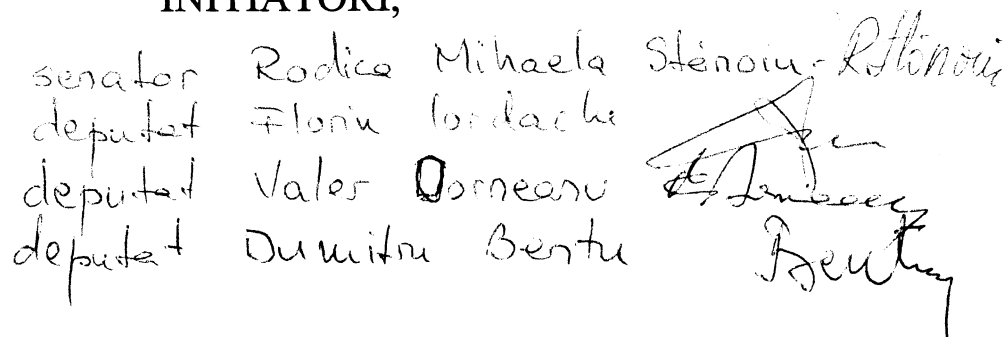 INIȚIATORI,
senator Rodica Mihaela Stănoiu - RStănoiu
deputat Florin Iordache
deputat Valer Dorneanu
deputat Dumitru Bentu Bentu